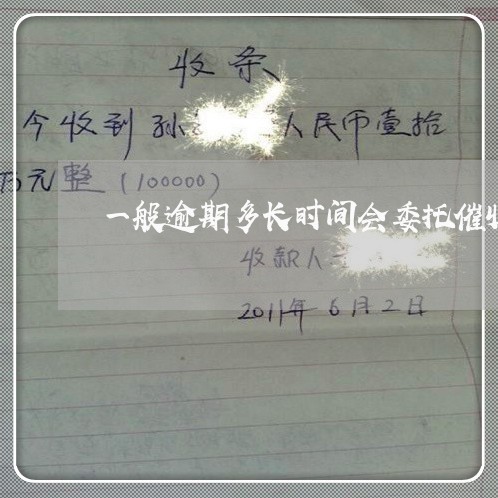 收条
今收到孙 人民币壹拾
万元整(100000)
一般逾期多长时间会委托催收
收款人
2011年6月2日